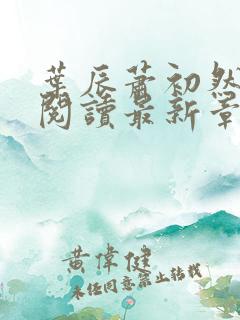 葉辰蕭初然
閱讀最新章
黃偉健
未经同意禁止转载